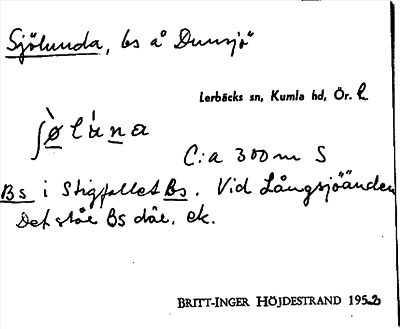 Sjölunda, bs å Dunsjö
Lerbäcks sn, Kumla hd, Ör. l
ʃø̀lúna
C:a 300 m S
Bs i Stigfallet Bs. Vid Långsjöänden
Det står Bs där. ek.
BRITT-INGER HÖJDESTRAND 1952